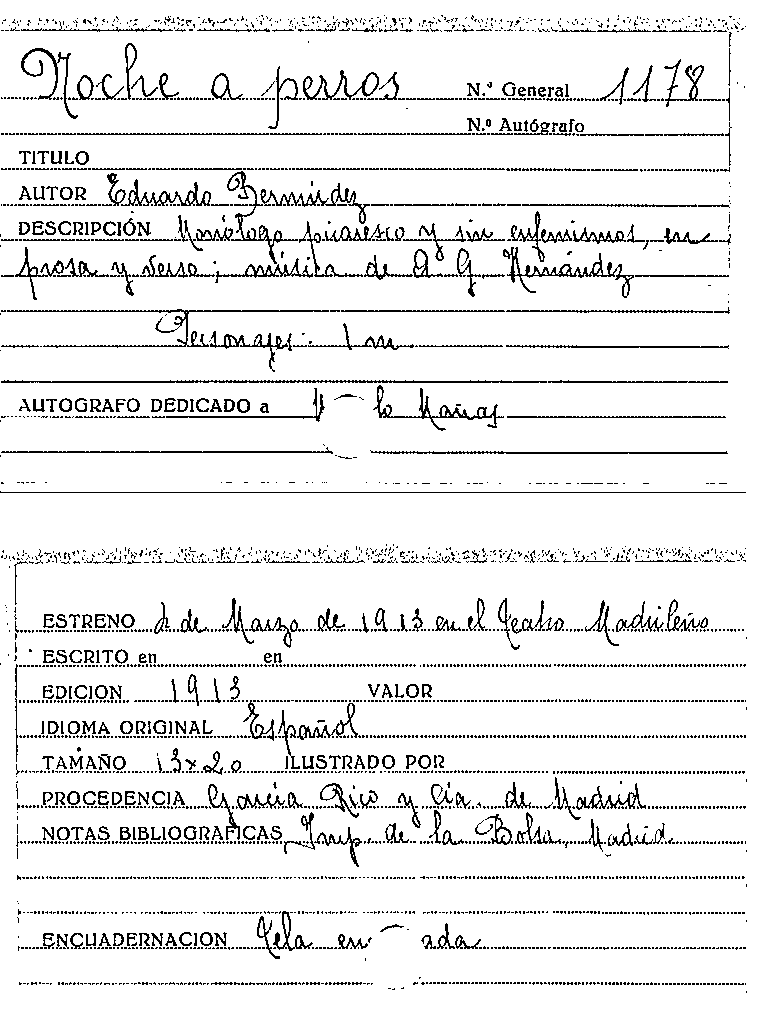 Noche a perros N.º General 1178
N.º Autógrafo
TITULO
AUTOR Eduardo Bermúdez
DESCRIPCIÓN Monólogo picaresco y sin eufemismos, en
prosa y verso; música de Aº G. Hernández
Personajes: 1 m.
AUTOGRAFO DEDICADO a lo Mañas
ESTRENO de Marzo de 1913 en el Teatro Madrileño
ESCRITO en en
EDICION 1913 VALOR
IDIOMA ORIGINAL Español
TAMAÑO 13x20 ILUSTRADO POR
PROCEDENCIA García Rico y Cía. de Madrid
NOTAS BIBLIOGRAFICAS Imp. de la Bolsa, Madrid.
ENCUADERNACION Tela en ada